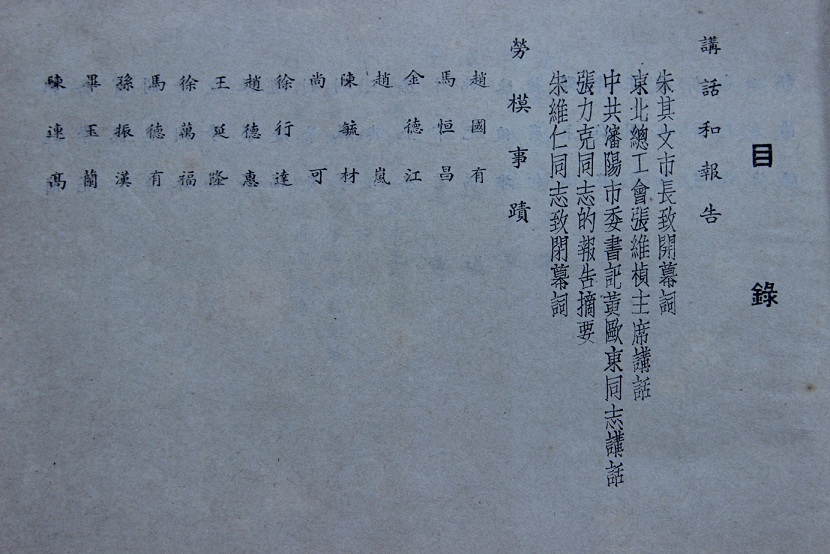 目錄
講話和報告
朱其文市長致開幕詞
東北總工會張維楨主席講話
中共瀋陽市委書記黃歐東同志講話
張力克同志的報告摘要
朱維仁同志致閉幕詞
勞模事蹟
趙國有
馬恒昌
金德江
趙嵐
陳毓材
尚可
徐行達
趙德惠
王延隆
徐萬福
馬德有
孫振漢
畢玉蘭
陳連高